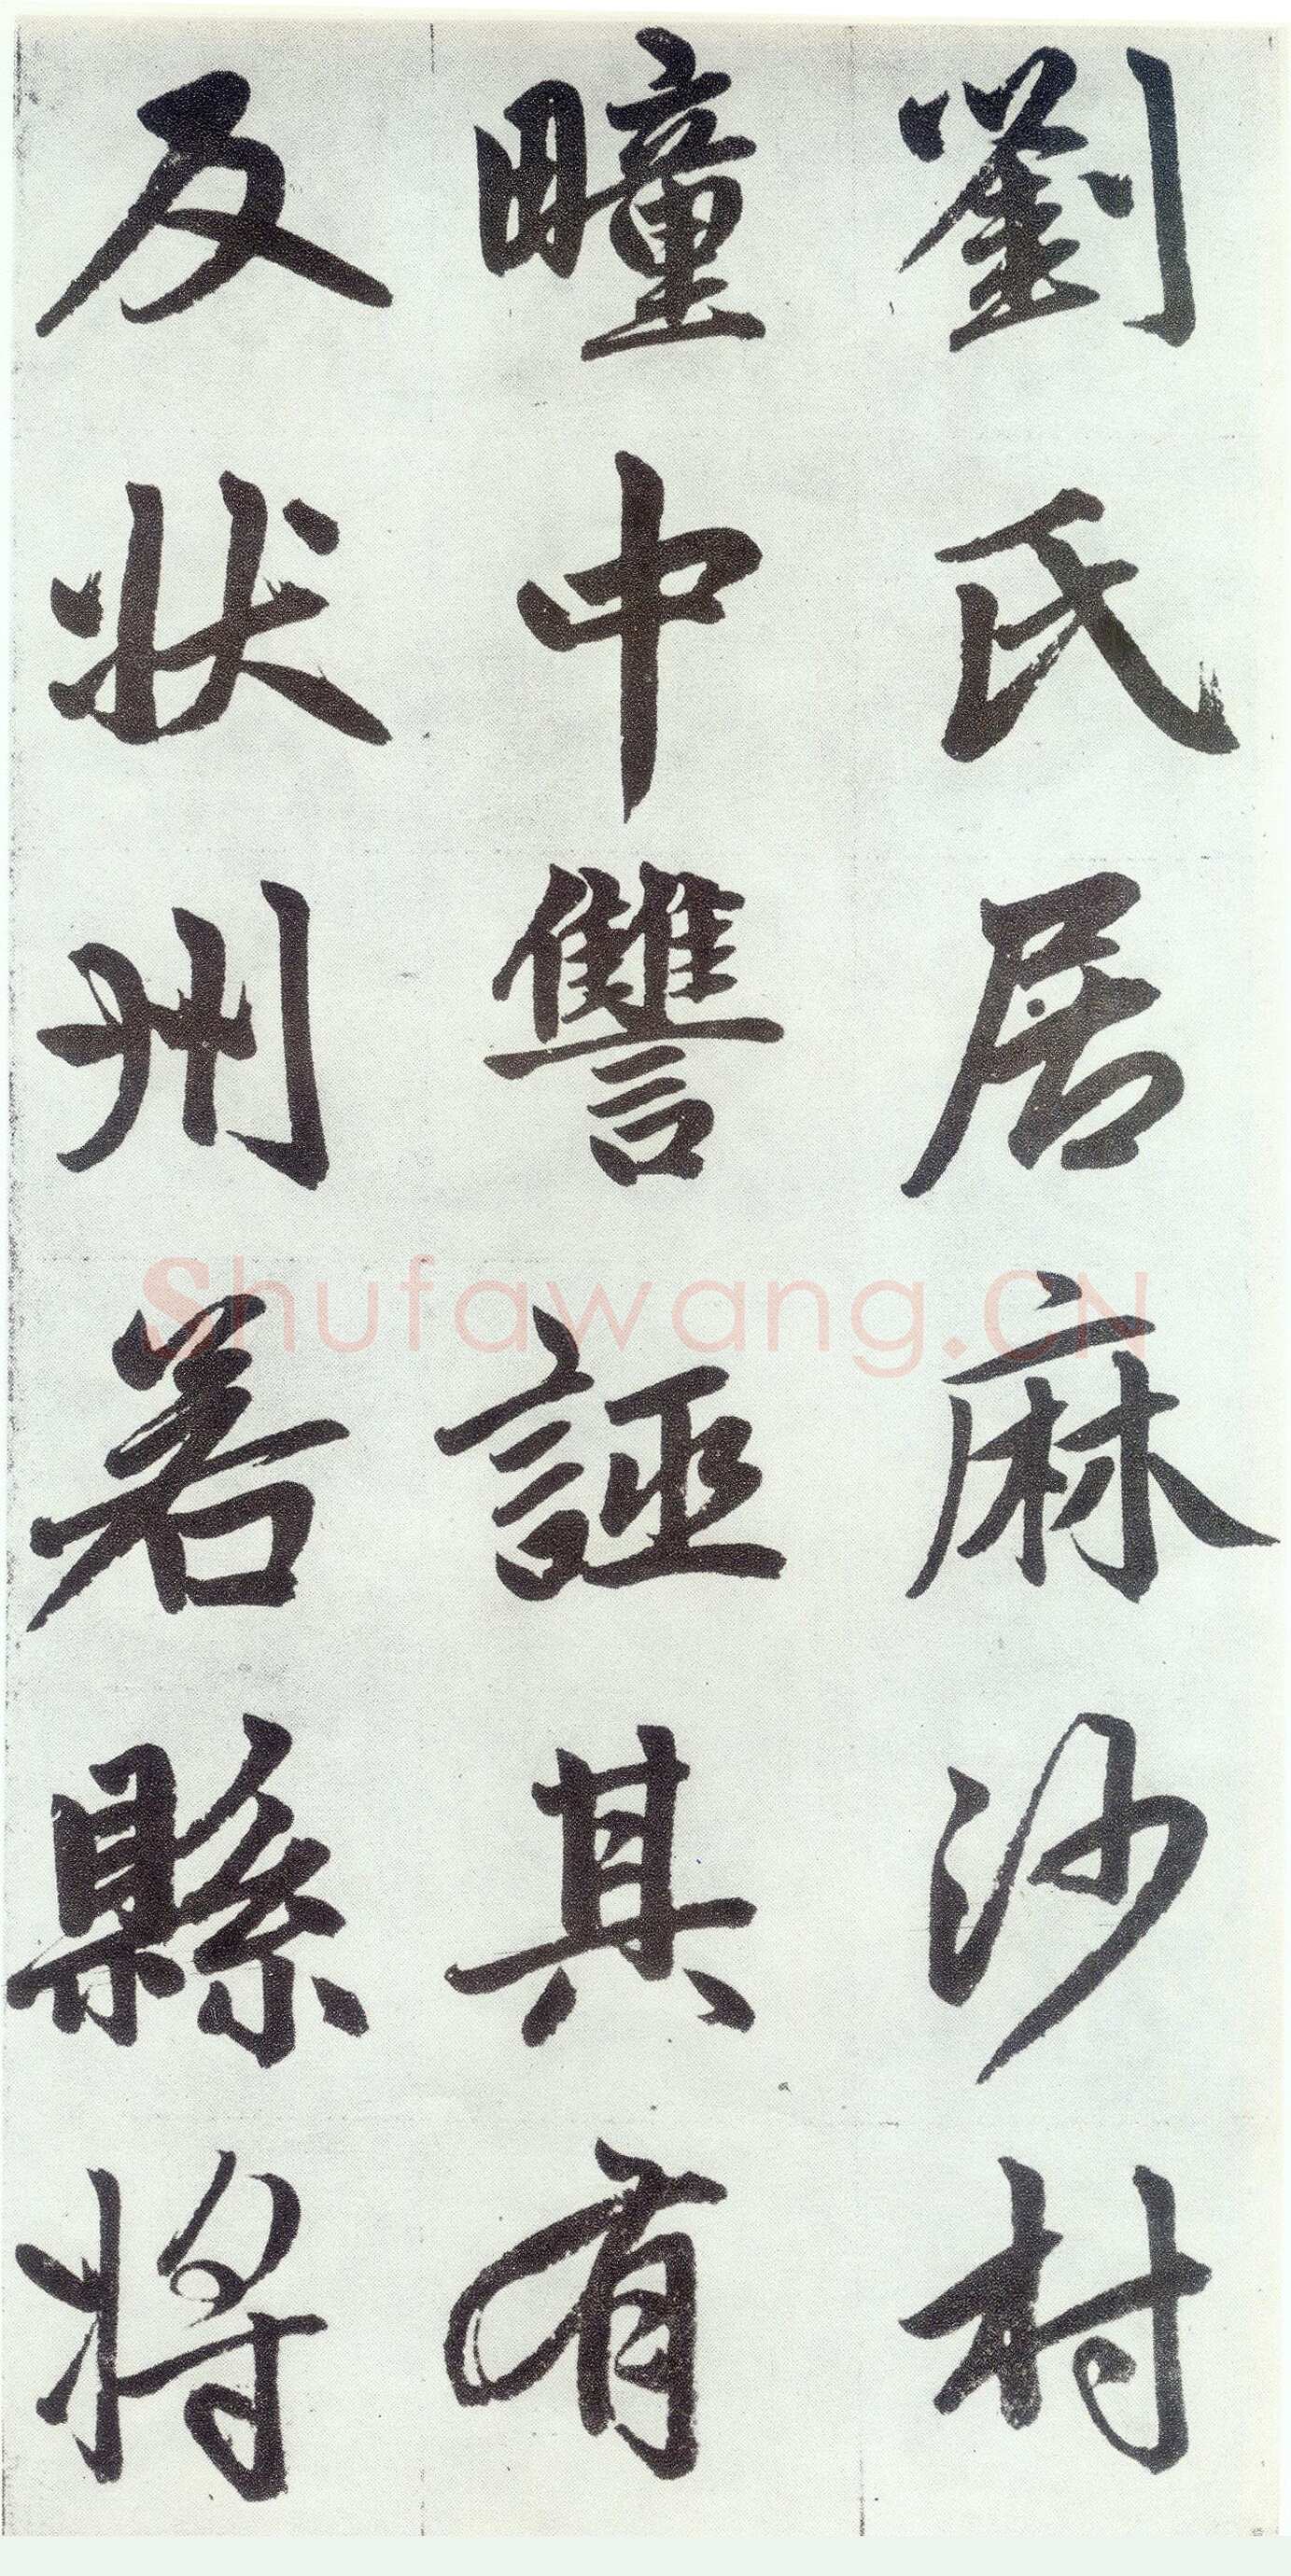 劉氏居麻沙村
疃中讐誣其有
反状州若縣將
Shufawang.CN